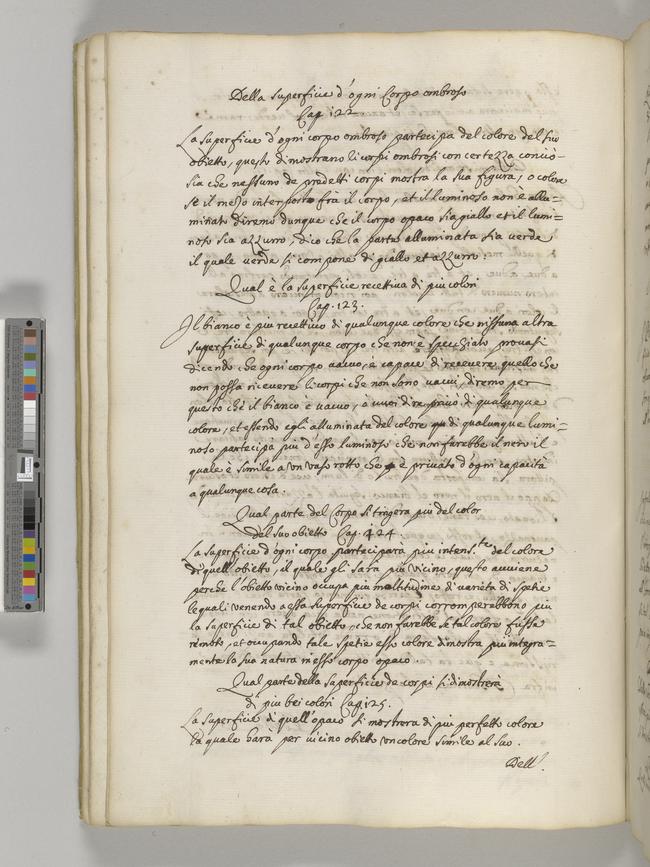 Della superficie d'ogni Corpo ombroso
Cap. 122
La superficie d'ogni corpo ombroso partecipa del colore del suo
obietto, questo dimostrano li corpi ombrosi con certezza conciò-
sia che nessuno de predetti corpi mostra la sua figura, o colore
se il mezo interposto frà il corpo, et il luminoso non è allu-
minato diremo dunque che il corpo opaco sia giallo et il lumi-
noso sia azzurro, dico che la parte alluminata sia verde
il quale verde si compone di giallo et azzurro.
Qual è la superficie recettiva di più colori
Cap. 123.
Il bianco è più recettivo di qualunque colore che nissuna altra
superficie di qualunque corpo che non è specchiato provasi
dicendo che ogni corpo vacuo, è capace di recevere quello che
non possa ricevere li corpi che non sono vacui, diremo per
questo che il bianco è vacuo, ò vuoi dire privo di qualunque
colore, et essendo egli alluminato del colore di qualunque lumi-
noso partecipa più d'esso luminoso che non farebbe il nero il
quale è simile a un vaso rotto che è privato d'ogni capacita
a qualunque cosa.
Qual parte del Corpo si tingera più del color
del suo obietto Cap. 124
La superficie d'ogni corpo parteciparà più intens.te del colore
di quell'obietto, il quale gli sara più vicino, questo avviene
perche l'obietto vicino occupa più moltitudine di varietà di spetie
le quali venendo a essa superficie de corpi corromperebbono più
la superficie di tal obietto, che non farebbe se tal colore fusse
remoto, et occupando tale spetie esso colore dimostra più integra-
mente la sua natura in esso corpo opaco.
Qual parte della superficie de corpi si dimostrerà
di più bei colori Cap. 125.
La superficie di quell'opaco si mostrera di più perfetto colore
la quale harà per vicino obietto un colore simile al suo.
Dell'